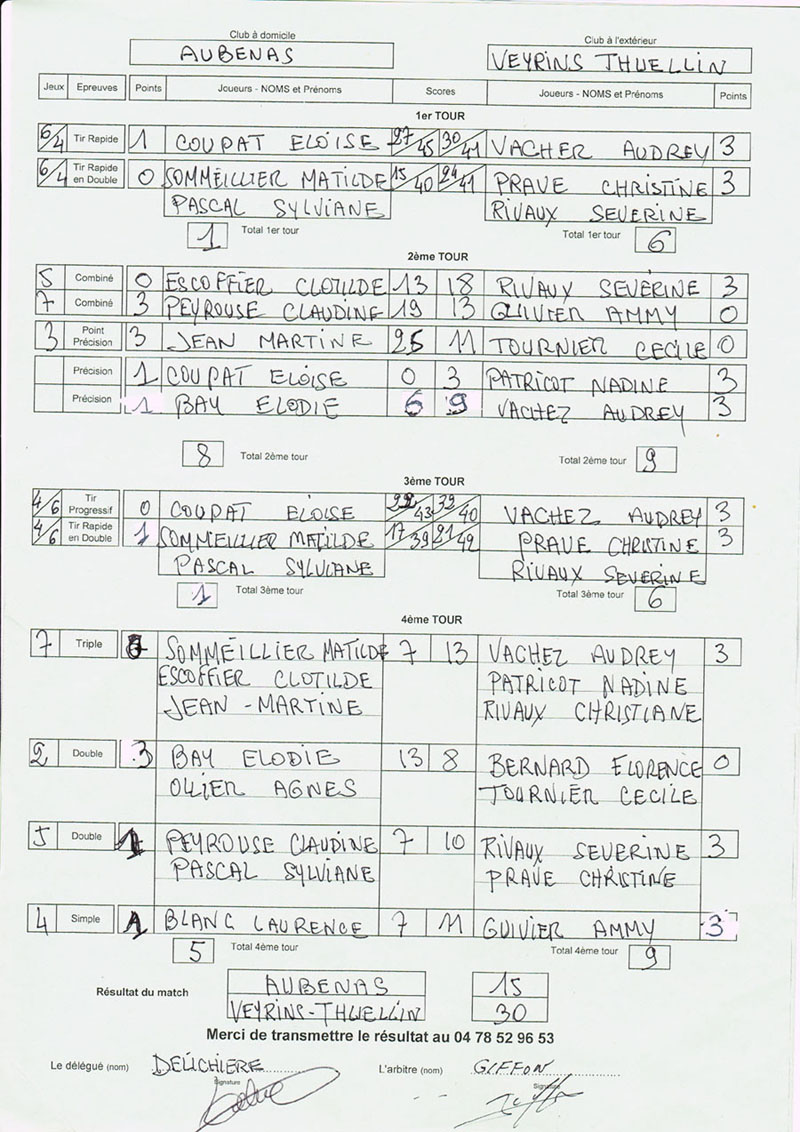 Club à domicile
Club à l'extérieur
AUBENAS
VEYRINS THUELLIN
Jeux Epreuves Points Joueurs - NOMS et Prénoms Scores Joueurs - NOMS et Prénoms Points
1er TOUR
6/4 Tir Rapide 1 COUPAT ELOÏSE 27/45 30/41 VACHER AUDREY 3
6/4 Tir Rapide en Double 0 SOMMEILLIER MATILDE 15/40 24/41 PRAVE CHRISTINE 3
PASCAL SYLVIANE RIVAUX SEVERINE
1 Total 1er tour Total 1er tour 6
2ème TOUR
5 Combiné 0 ESCOFFIER CLOTILDE 13 18 RIVAUX SEVERINE 3
7 Combiné 3 PEYROUSE CLAUDINE 19 13 GUIVIER AMMY 0
3 Point Précision 3 JEAN MARTINE 25 11 TOURNIER CECILE 0
Précision 1 COUPAT ELOÏSE 0 3 PATRICOT NADINE 3
Précision 1 BAY ELODIE 6 9 VACHEZ AUDREY 3
8 Total 2ème tour Total 2ème tour 9
3ème TOUR
4/6 Tir Progressif 0 COUPAT ELOISE /43 39/40 VACHEZ AUDREY 3
4/6 Tir Rapide en Double 1 SOMMEILLIER MATILDE 17/39 21/42 PRAVE CHRISTINE 3
PASCAL SYLVIANE RIVAUX SEVERINE
1 Total 3ème tour Total 3ème tour 6
4ème TOUR
7 Triple SOMMEILLIER MATILDE 7 13 VACHEZ AUDREY 3
ESCOFFIER CLOTILDE PATRICOT NADINE
JEAN - MARTINE RIVAUX CHRISTIANE
2 Double 3 BAY ELODIE 13 8 BERNARD FLORENCE 0
OLLIER AGNES TOURNIER CECILE
5 Double 1 PEYROUSE CLAUDINE 7 10 RIVAUX SEVERINE 3
PASCAL SYLVIANE PRAVE CHRISTINE
4 Simple 1 BLANC LAURENCE 7 11 GUIVIER AMMY 3
5 Total 4ème tour Total 4ème tour 9
Résultat du match AUBENAS 15
VEYRINS-THUELLIN 30
Merci de transmettre le résultat au 04 78 52 96 53
Le délégué (nom) DEUCHIERE L'arbitre (nom) GIFFON
Signature Signature